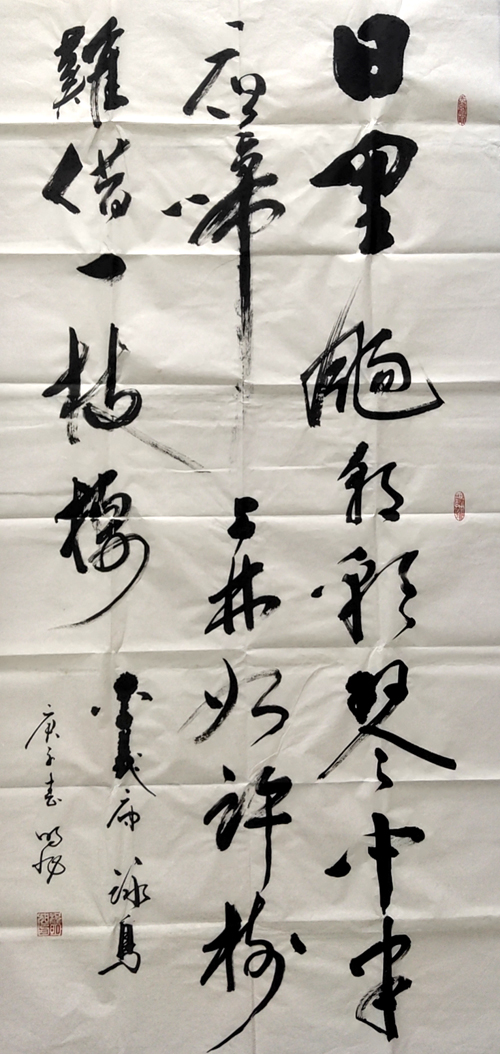 日里飏朝彩琴中半
夜啼上林如許树
難借一枝棲
李義府詠烏
庚子春明